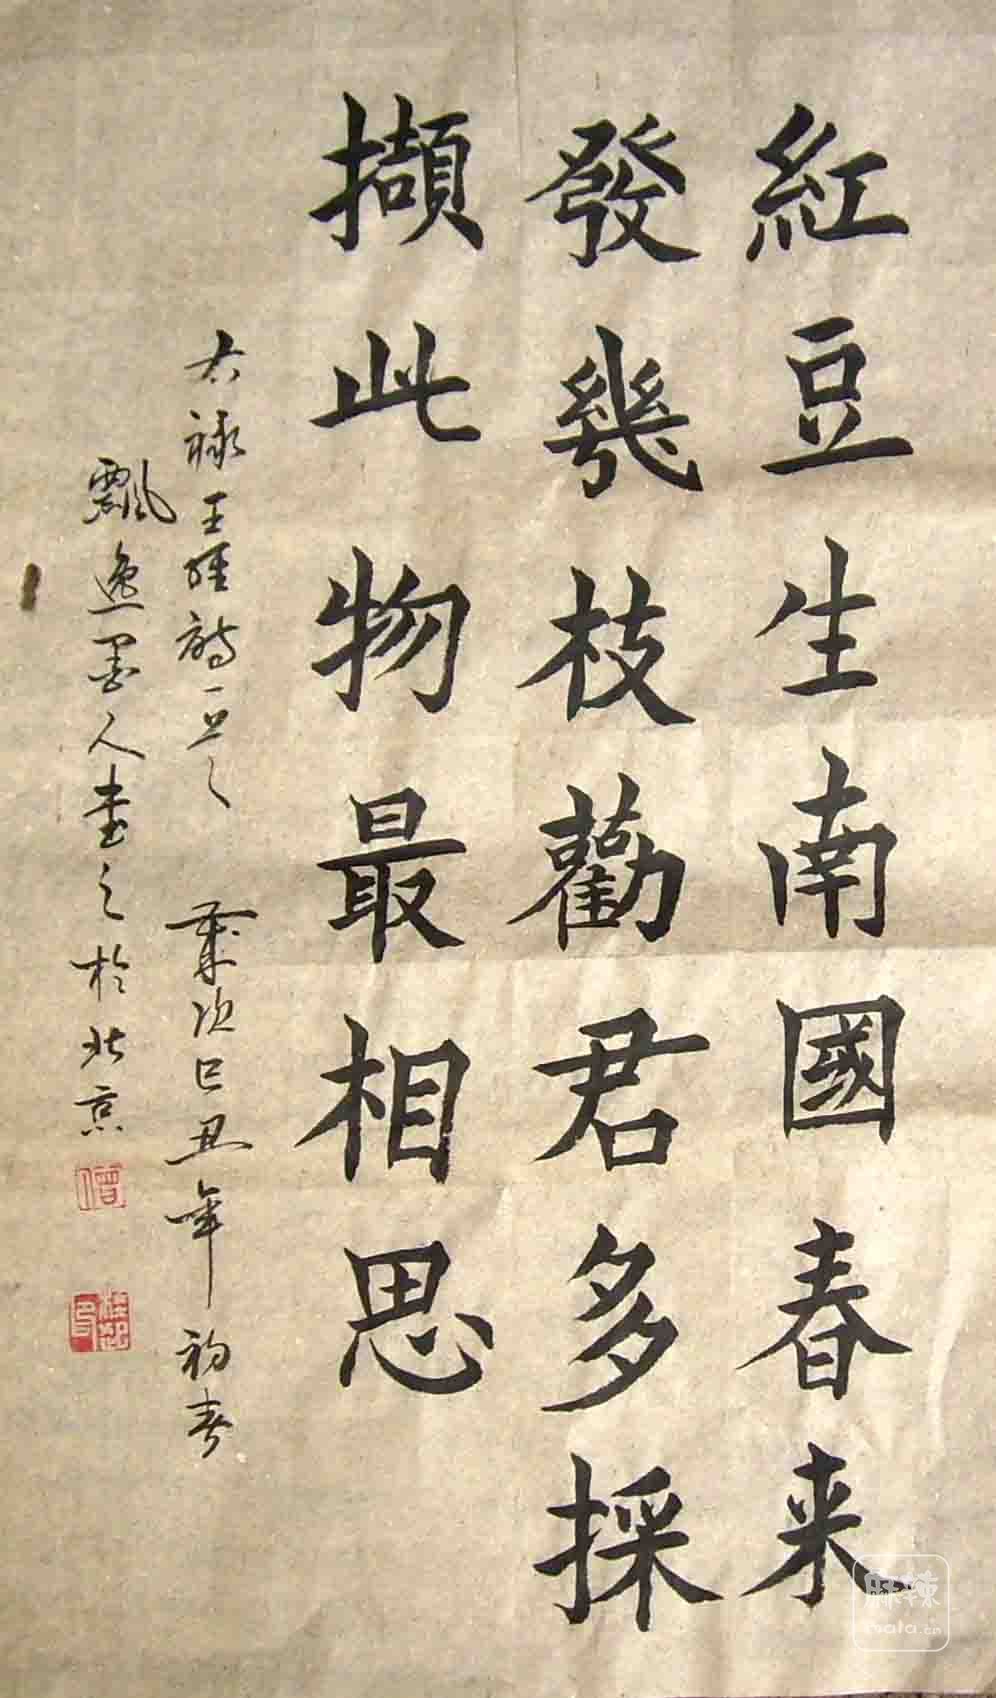 紅豆生南國春来
發幾枝勸君多採
擷此物最相思
右禄王維詩一首 歲次己丑年 初春
飄逸墨人書之於北京
麻辣
mala.cn